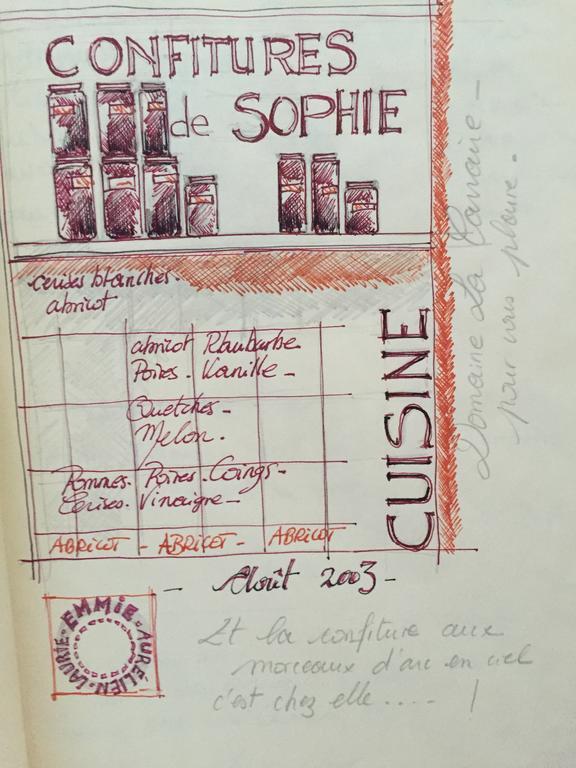 CONFITURES
de SOPHIE
cerises blanches.
abricot
abricot Rhubarbe
Poires. Vanille -
Quetches -
Melon.
Pommes. Poires. Coings -
Cerises. Vinaigre -
ABRICOT - ABRICOT - ABRICOT
CUISINE
Domaine La
pour vous plaire.
- Août 2003 -
EMMIE · AURELIEN · LAURIE ·
Et la confiture aux
morceaux d'arc en ciel
c'est chez elle.... !